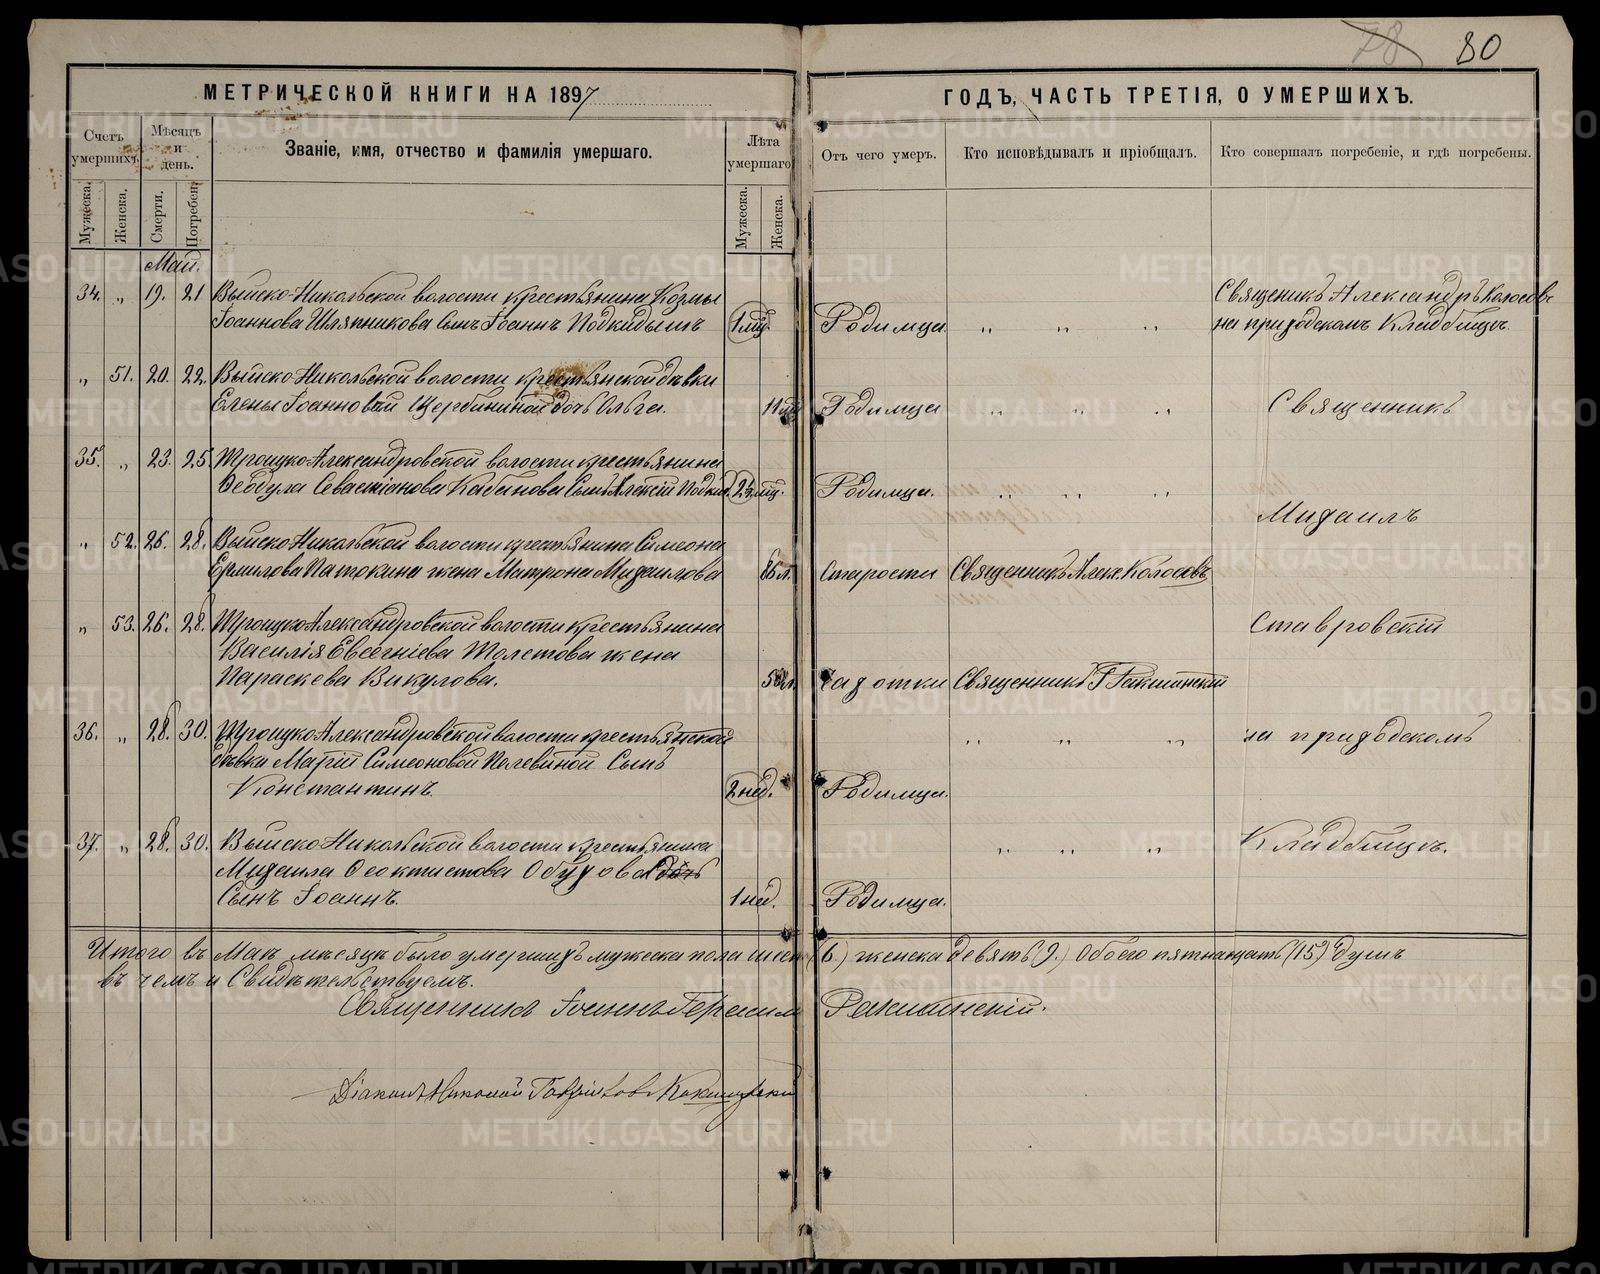 78 80
МЕТРИЧЕСКОЙ КНИГИ НА 1897 ГОДЪ, ЧАСТЬ ТРЕТІЯ, О УМЕРШИХЪ.
Счетъ умершихъ.
Мѣсяцъ и день.
Званіе, имя, отчество и фамилія умершаго.
Лѣта умершаго
Отъ чего умеръ.
Кто исповѣдывалъ и пріобщалъ.
Кто совершалъ погребеніе, и гдѣ погребены.
Мужеска. Женска. Смерти. Погребен. Мужеска. Женска.
Май.
34. „ 19. 21 Выйско-Никольской волости крестьянина Козмы Священникъ Александръ Колосовъ
Іоаннова Шляпникова Сынъ Іоаннъ Подкидышъ 1 мѣс. Родимца „ „ „ на приходскомъ Кладбищѣ
„ 51. 20. 22. Выйско-Никольской волости крестьянской дѣвки
Елены Іоанновой Щербининой дочь Ольга. 11 Родимца „ „ „ Священникъ
35. „ 23. 25. Троицко-Александровской волости крестьянина
Ѳеодула Севастіанова Кабанова Сынъ Алексій Подкид. 2½ мѣс. Родимца. „ „ „
Михаилъ
„ 52. 26. 28. Выйско-Никольской волости крестьянина Симеона
Ермилова Патокина жена Матрона Михаилова Старости Священникъ Алек. Колосовъ
„ 53. 26. 28. Троицко-Александровской волости крестьянина Ставровскій
Василія Евсегніева Толстова жена
Параскева Викулова. Чахотки Священникъ Г Ракшинскій
36. „ 28. 30. Троицко-Александровской волости крестьянской „ „ „ на приходскомъ
дѣвки Маріи Симеоновой Полевиной Сынъ
Константинъ. 2 нед. Родимца.
37. „ 28. 30. Выйско-Никольской волости крестьянина „ „ „ Кладбищѣ.
Михаила Ѳеоктистова Обухова дочь
Сынъ Іоаннъ. 1 нед. Родимца.
Итого въ Маѣ мѣсяцѣ было умершихъ мужеска пола шесть (6.) женска девять (9.) Обоего пятнацать (15) Душъ
въ чемъ и Свидѣтельствуемъ.
Священникъ Іоаннъ Герасим Ракшинскій.
Діаконъ Николай
METRIKI.GASO-URAL.RU